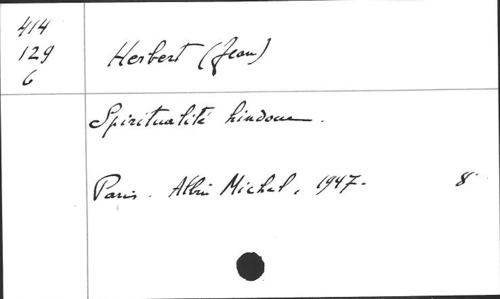 414
129
6
Herbert (Jean)
Spiritualité hindoue.
Paris. Albin Michel, 1947. 8°